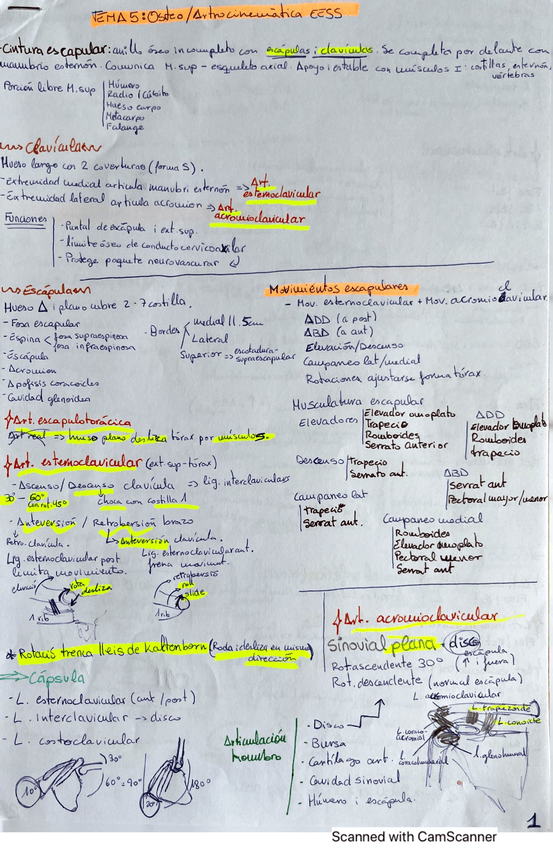 TEMA 5: Osteo/Artrocinemática EESS
- Cintura escapular: anillo óseo incompleto con escápulas i clavículas. Se completa por delante con
manubrio esternón. Comunica M.sup - esqueleto axial. Apoyo i estable con músculos I: costillas, esternón,
vértebras
Porción libre M.sup
Húmero
Radio i Cúbito
Hueso carpo
Metacarpo
Falange
Clavícula
Hueso largo con 2 (forma S).
- Extremidad medial articula manubri esternón => Art. esternoclavicular
- Extremidad lateral articula acromion => Art. acromioclavicular
Funciones
- Puntal de escápula i ext. sup.
- límite óseo de conducto cervicoaxilar
- Protege paquete neurovascurar
Escápula
Hueso Δ i plano 2-7 costilla.
- Fosa escapular
- Espina < fosa supraespinosa
fosa infraespinosa
- Escápula
- Acromion
- Apófisis coracoides
- Cavidad glenoidea
- Bordes
medial 11.5cm
Lateral
Superior => escotadura supraescapular
Art. escapulotorácica
=> hueso plano desliza tórax por músculos.
Art. esternoclavicular (ext sup-tórax)
- Ascenso/Descenso clavícula -> lig. interclaviculares
30° - 60°
45°
choca con costilla 1
- Anteversión / Retrobersión brazo
Retro. clavícula.
↳ Anteversión clavícula.
Lig. esternoclavicular post
limita movimiento.
Lig. esternoclavicular ant.
frena moviment.
rota
desliza
1 rib
retrobersió
roll
slide
1 rib
* trenca lleis de Kaltenborn (Roda i desliza en misma
dirección)
=> Cápsula
- L. esternoclavicular (ant/post)
- L. interclavicular -> disco
- L. costoclavicular
10°
30°
60°-90°
20°
180°
Movimientos escapulares
- Mov. esternoclavicular + Mov. acromioclavicular
ADD (a post)
ABD (a ant)
Elevación/Descenso
Campaneo lat/medial
Rotaciones ajustarse forma tórax
Musculatura escapular
Elevadores
Elevador omoplato
Trapecio
Romboides
Serrato anterior
ADD
Elevador omoplato
Romboides
trapecio
Descenso
Trapecio
Serrato ant.
ABD
Serrat ant
Pectoral mayor/menor
Campaneo lat
trapecio
Serrat ant.
Campaneo medial
Romboides
Elevador omoplato
Pectoral menor
Serrat ant
Art. acromioclavicular
sinovial plana + disco
Rotascendente 30° escápula (↑ i fuera)
Rot. descendente (normal escápula)
L. acromioclavicular
L. trapezoide
L. conoide
L. glenohumeral
L. coracohumeral
Articulación
hombro
- Disco
- Bursa
- Cartílago art.
- Cavidad sinovial
- Húmero i escápula.
1
Scanned with CamScanner